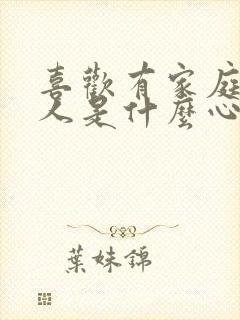 喜歡有家庭
人是什麼心
葉妹錦